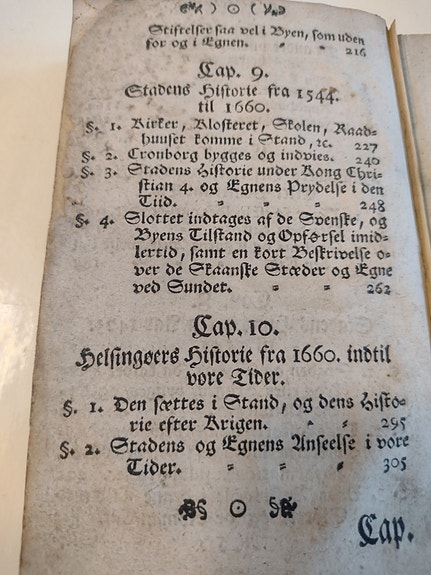 Stiftelser saa vel i Byen, som uden
for og i Egnen. = = 216
Cap. 9.
Stadens Historie fra 1544.
til 1660.
§. 1. Kirker, Klosteret, Skolen, Raad-
huuset komme i Stand, ꝛc. 227
§. 2. Cronborg bygges og indvies. 240
§. 3. Stadens Historie under Kong Chri-
stian 4. og Egnens Prydelse i den
Tiid. = = = 248
§. 4. Slottet indtages af de Svenske, og
Byens Tilstand og Opførsel imid-
lertid, samt en kort Beskrivelse o-
ver de Skaanske Stæder og Egne
ved Sundet. = = 262
Cap. 10.
Helsingøers Historie fra 1660. indtil
vore Tider.
§. 1. Den sættes i Stand, og dens Histo-
rie efter Krigen. = = 295
§. 2. Stadens og Egnens Anseelse i vore
Tider. = = = 305
Cap.